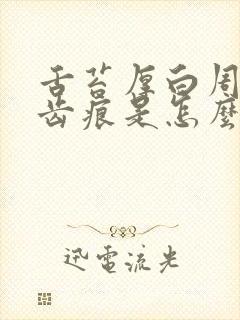 舌苔厚白周
齿痕是怎麼
迅電流光